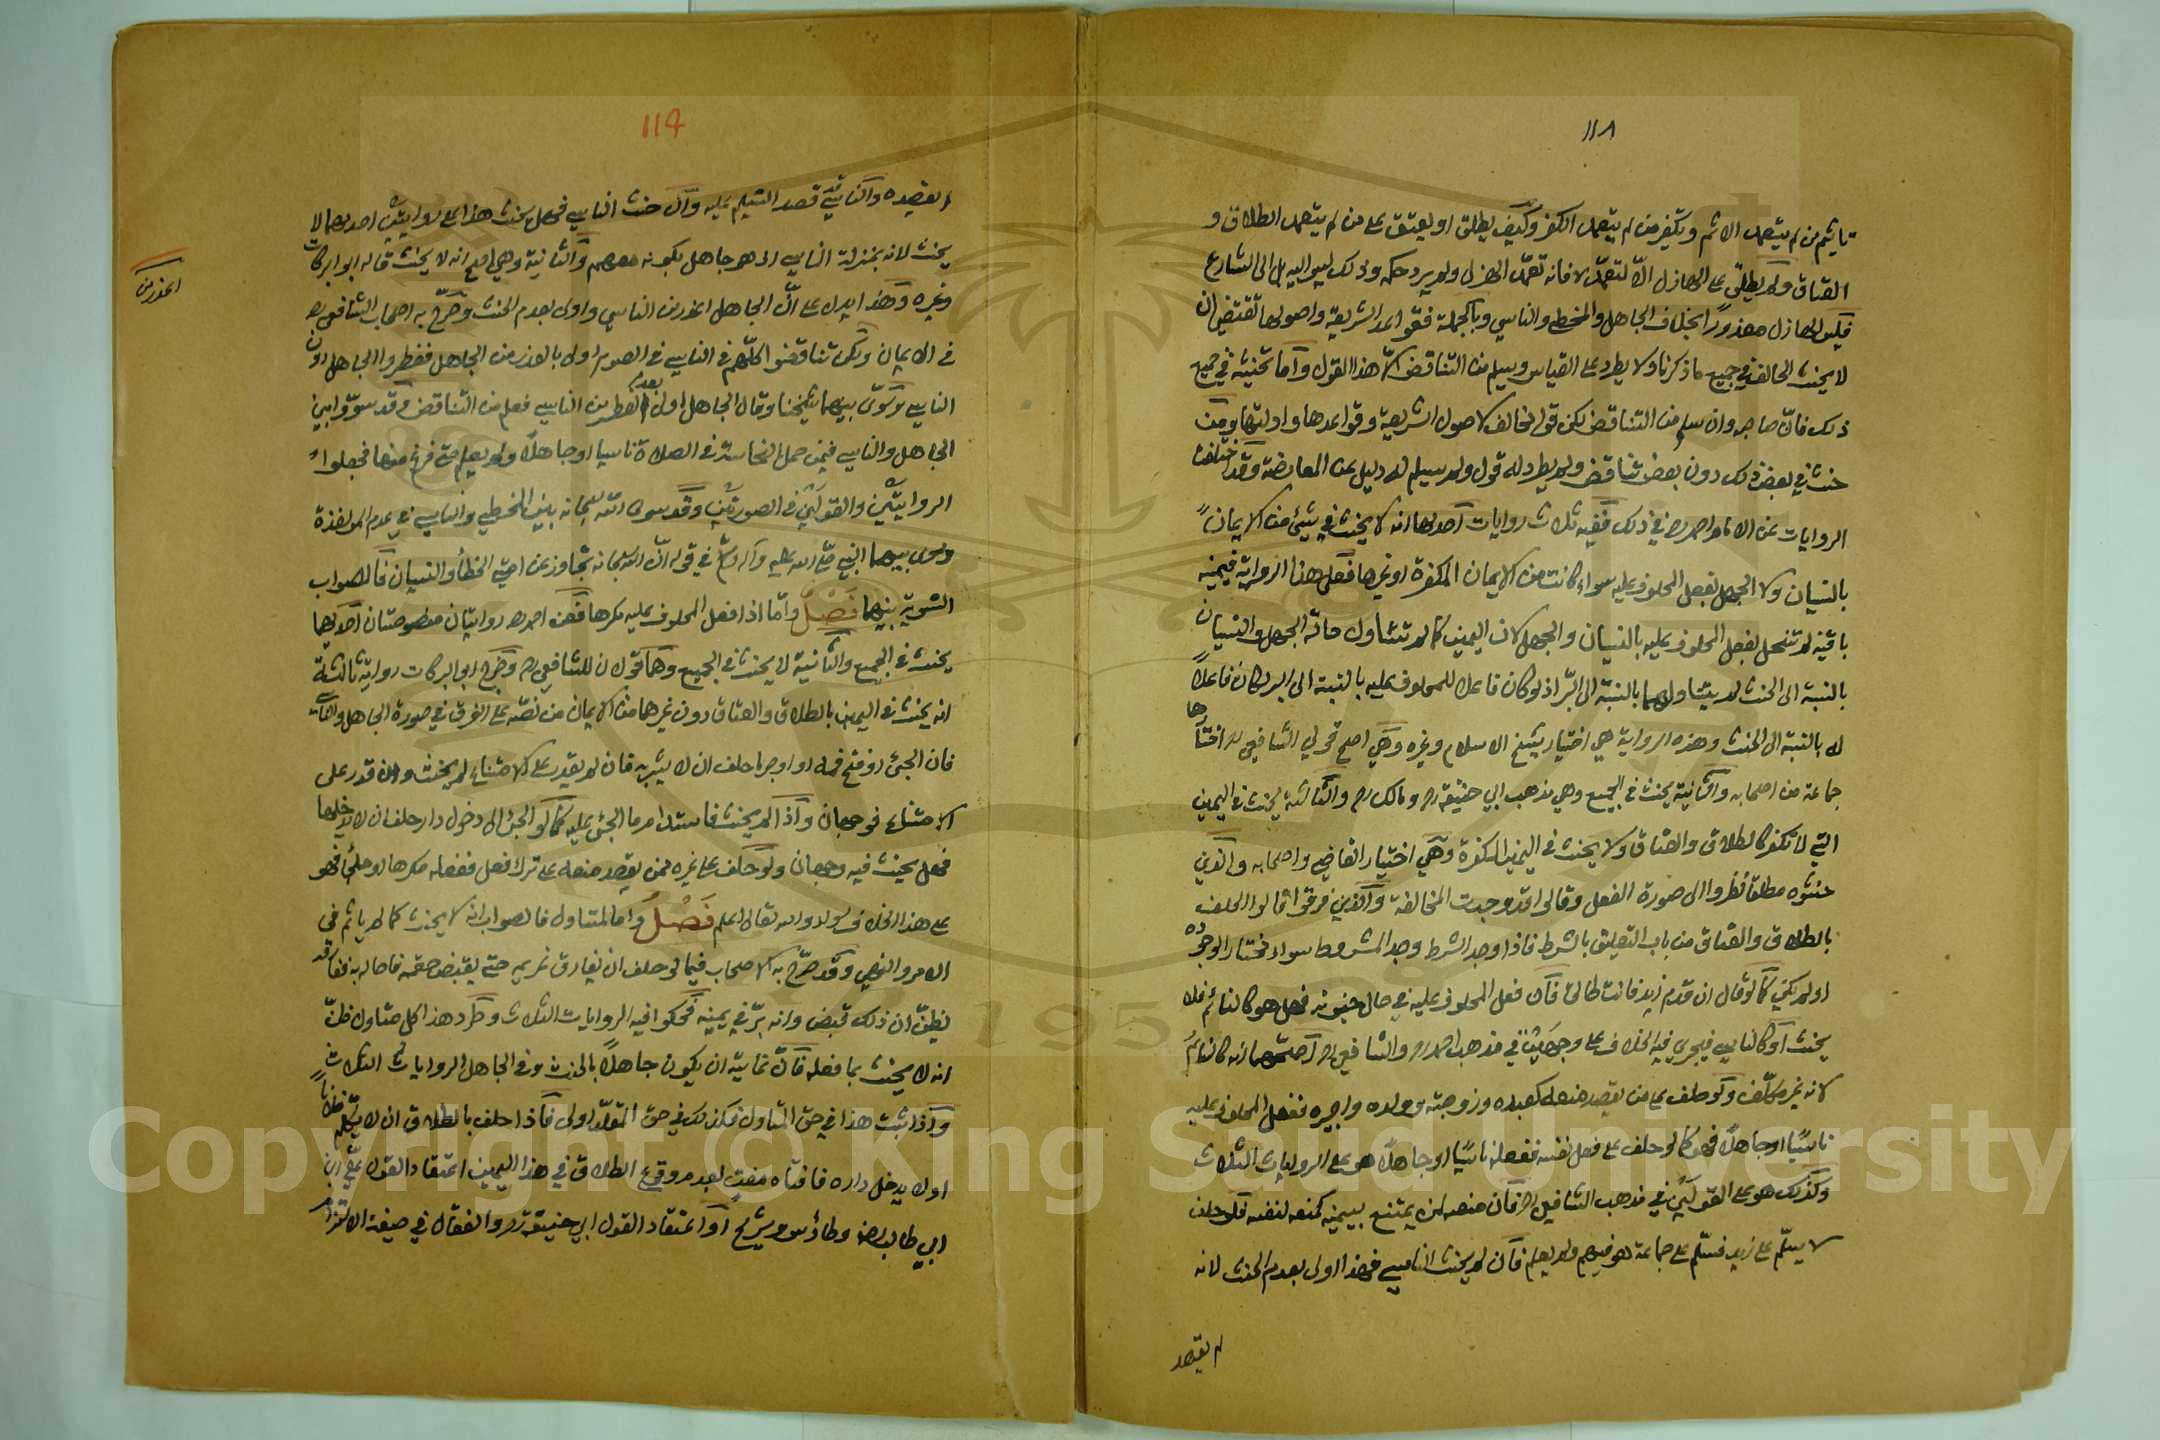 ١١٨
تأثيم من لم يتعمد الاثم وتكفير من لم يتعمد الكفر وكيف يطلق او يعتق على من لم يتعمد الطلاق و
العتاق ولم يطلق على الهازل الا لتعمده لا فانه تعمد الهزل ولم يرد حكمه وذلك ليس اليه بل الى الشارع
فليس الهازل معذورا بخلاف الجاهل والمخطي والناسي وبالجملة فقواعد الشريعة واصولها تقتضي ان
لا يحنث الحالف في جميع ما ذكرنا ولا يطرد على القياس ويسلم من التناقض الا هذا القول واما تحنيثه في جميع
ذلك فان صاحبه وان سلم من التناقض لكن قوله مخالف لاصول الشريعة وقواعدها وادلتها ومن
حنث في بعض ذلك دون بعض تناقض ولم يطرد له قول ولم يسلم له دليل عن المعارضة وقد اختلفت
الروايات عن الامام احمد رض في ذلك ففيه ثلاث روايات احدها انه لا يحنث في شيئ من الايمان
بالنسيان ولا الجهل بفعل المحلوف عليه سواء كانت من الايمان المكفرة او غيرها فعلى هذا الرواية فيمينه
باقية لم تنحل بفعل المحلوف عليه بالنسيان والجهل لان اليمين كما لم تتناول حالة الجهل والنسيان
بالنسبة الى الحنث لم يتناولهما بالنسبة الى البر اذ لو كان فاعلا للمحلوف عليه بالنسبة الى البر لكان فاعلا
له بالنسبة الى الحنث وهذه الرواية هي اختيار شيخ الاسلام وغيره وهي اصح قولي الشافعي رح اختارها
جماعة من اصحابه والثانية يحنث في الجميع وهي مذهب ابي حنيفة رح ومالك رح والثالثة يحنث في اليمين
التي لا تكفر كالطلاق والعتاق ولا يحنث في اليمين المكفرة وهي اختيار القاضي واصحابه والذين
حنثوه مطلقا نظروا الى صورة الفعل وقالوا قد وجدت المخالفة والذين فرقوا قالوا الحلف
بالطلاق والعتاق من باب التعليق بالشرط فاذا وجد الشرط وجد المشروط سواء مختار الوجوده
اولم يكن كما لو قال ان قدم زيد فانت طالق فان فعل المحلوف عليه في حال جنونه فهل هو كالنائم فلا
يحنث او كالناسي فيجري فيه الخلاف على وجهين في مذهب احمد رح والشافعي رح اصحهما انه كالنائم
لانه غير مكلف ولو حلف على من يقصد منعه كعبده وزوجته وولده واجيره ففعل المحلوف عليه
ناسيا او جاهلا فهو كما لو حلف على فعل نفسه ففعله ناسيا او جاهلا هو على الروايات الثلاث
وكذلك هو على القولين في مذهب الشافعي رح فان منعه لمن يمتنع بيمينه كمنعه لنفسه فلو حلف
لا يسلم على زيد فسلم على جماعة هو فيهم ولم يعلم فان لم يحنث الناسي فهذا اولى بعدم الحنث لانه
لم يقصد
١١٩
لم يقصده والناسي قد قصد التسليم عليه وان حنث الناسي فهل يحنث هذا على روايتين احدهما لا
يحنث لانه بمنزلة الناسي اذ هو جاهل بكونه معهم والثانية وهي اصح انه لا يحنث قاله ابو البركات
وغيره وهذا يدل على ان الجاهل اعذر من الناسي واولى بعدم الحنث وصرح به اصحاب الشافعي رح
في الايمان ولكن تناقضوا كلهم في الناسي في الصوم اولى بالعذر من الجاهل ففطروا الجاهل دون
الناسي وسوى بينهما شيخنا وقال الجاهل اولى بعدم الفطر من الناسي فسلم من التناقض وقد سووا بين
الجاهل والناسي فيمن حمل النجاسة في الصلاة ناسيا او جاهلا ولم يعلم حتى فرغ منها فجعلوا
الروايتين والقولين في الصورتين وقد سوى الله سبحانه بين المخطي والناسي في عدم المؤاخذة
وسوى بينهما النبي صلى الله عليه وآله وسلم في قوله ان الله سبحانه تجاوز عن امتي الخطأ والنسيان فالصواب
التسوية بينهما فَصْلٌ واما اذا فعل المحلوف عليه مكرها فعن احمد رح روايتان منصوصتان احدهما
يحنث في الجميع والثانية لا يحنث في الجميع وهما قولان للشافعي رح وخرج ابو البركات رواية ثالثة
انه يحنث في اليمين بالطلاق والعتاق دون غيرهما من الايمان من نصه على الفرق في صورة الجاهل والناسي
فان الجئ او فتح فمه او اوجر ما حلف ان لا يشربه فان لم يقدر على الامتناع لم يحنث وان قدر على
الامتناع فوجهان واذا لم يحنث فاستدام ما الجئ عليه كما لو الجئ الى دخول دار حلف ان لا يدخلها
فهل يحنث فيه وجهان ولو حلف على غيره ممن يقصد منعه على ترك فعل ففعله مكرها او ملجأ فهو
على هذا الخلاف سواء والله تعالى اعلم فَصْلٌ واما المتاول فالصواب انه لا يحنث كما لم يأثم في
الامر والنهي وقد صرح به الاصحاب فيما لو حلف ان لا يفارق غريمه حتى يقبض حقه فاحاله به ففارقه
يظن ان ذلك قبض وانه بر في يمينه فحكوا فيه الروايات الثلاث وطرد هذا كل متاول ظن
انه لا يحنث بما فعله فان غايته ان يكون جاهلا بالحنث وفي الجاهل الروايات الثلاث
واذا ثبت هذا في حق المتاول فكذلك في حق المقلد اولى فاذا حلف بالطلاق ان لا يكلم فلانا
اولا يدخل داره فافتاه مفت بعدم وقوع الطلاق في هذا اليمين اعتقادا لقول علي ابن
ابي طالب رض وطاؤس وشريح او اعتقادا لقول ابي حنيفة رح والقفال في صيغة الالتزام
اعذر من
Copyright © King Saud University